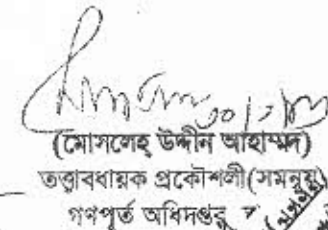 (মোসলেহ্ উদ্দীন আহাম্মদ)
তত্ত্বাবধায়ক প্রকৌশলী(সমন্বয়)
গণপূর্ত অধিদপ্তর